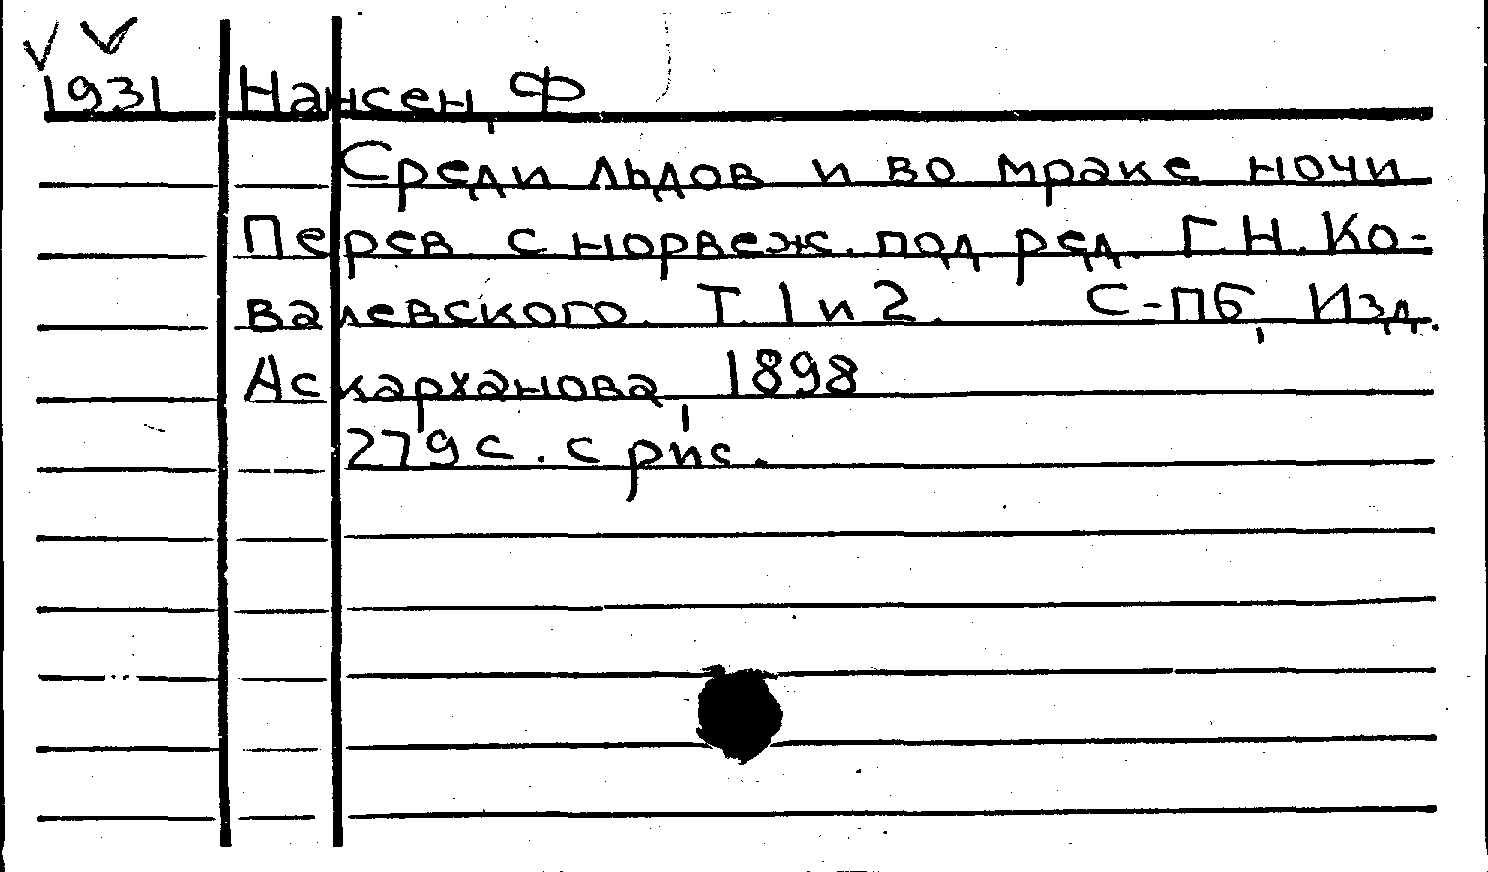 1931 Нансен, Ф
Среди льдов и во мраке ночи
Перев. с норвеж. под ред. Г.Н. Ко-
валевского. Т. 1 и 2. С-Пб, Изд.
Аскарханова, 1898
279 с. с рис.